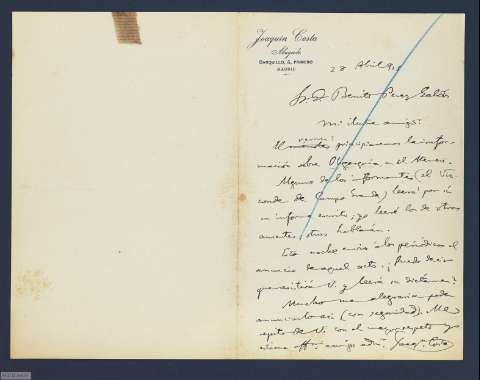 Joaquín Costa
Abogado
BARQUILLO, 5, PRIMERO
MADRID
23 Abril 
Sr. D. Benito Perez Galdós
Mi ilustre amigo:
El viernes principiaremos la infor-
mación sobre Oligarquía en el Ateneo.
Algunos de los informantes (el Viz-
conde de Campo Grande) leerá por sí
su informe escrito; yo leeré los de otros
ausentes; otros hablarán.
Esta noche envío a los periódicos el
anuncio de aquel acto. ¿Puedo decir
que asistirá V. y leerá su dictamen?
Mucho me alegraría poder
anunciarlo así (con seguridad). Me
repito de V. con el mayor respeto y
affmo. amigo adm. Joaqn. Costa